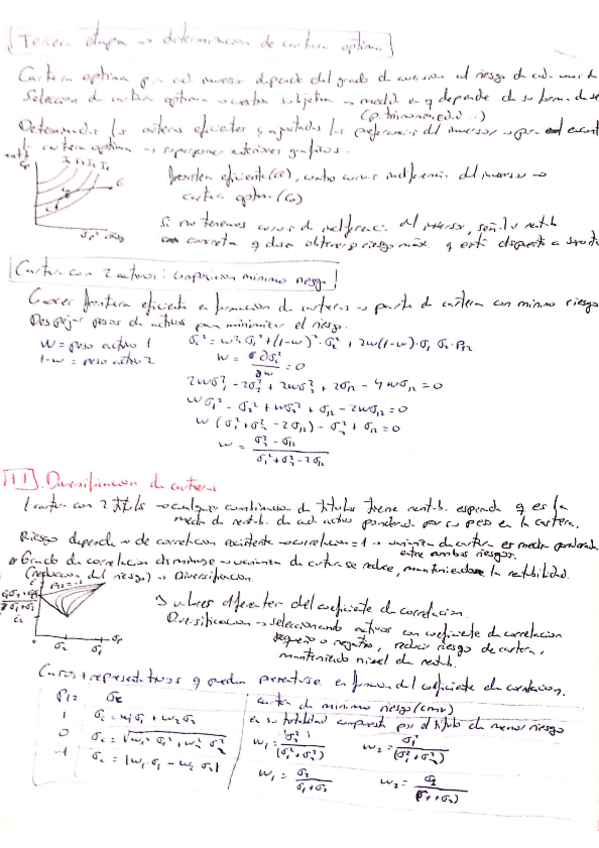 Tercera etapa → determinación de cartera óptima
Cartera óptima para cada inversor depende del grado de aversión al riesgo de cada uno de
Selección de cartera óptima → cuestión subjetiva → medida en q depende de su forma de se
(p. patrimonio, edad ...)
Determinadas las carteras eficientes y ajustadas las preferencias del inversor → para encont
la cartera óptima → superponer anteriores gráficos.
frontera eficiente (CE), cuatro curvas indiferencia del inversor →
cartera óptima (Co)
Si no tenemos curvas de indiferencia del inversor, señala rentab.
concreta q desea obtener o riesgo máx q está dispuesto a soporta
Cartera con 2 activos: composición mínimo riesgo
Conocer frontera eficiente en formación de carteras → parte de cartera con mínimo riesgo
Despejar pesos de activos para minimizar el riesgo.
w = peso activo 1
1-w = peso activo 2
σc² = w²·σ1² + (1-w)²·σ2² + 2w(1-w)·σ1 σ2·ρ12
w = ∂σc² / ∂w = 0
2wσ1² - 2σ2² + 2wσ2² + 2σ12 - 4wσ12 = 0
wσ1² - σ2² + wσ2² + σ12 - 2wσ12 = 0
w(σ1² + σ2² - 2σ12) - σ2² + σ12 = 0
w = σ2² - σ12 / σ1² + σ2² - 2σ12
11. Diversificación de carteras
1 cartera con 2 títulos → cualquier combinación de títulos tiene rentab. esperada q es la
media de rentab. de cada activo ponderada por su peso en la cartera.
Riesgo depende → de correlación existente → correlación = 1 → varianza de cartera es media ponderada
entre ambos riesgos.
Grado de correlación disminuye → varianza de cartera se reduce, manteniéndose la rentabilidad.
(reducción del riesgo) → Diversificación
3 valores diferentes del coeficiente de correlación.
Diversificación → seleccionando activos con coeficiente de correlación
pequeño o negativo, reducir riesgo de cartera,
manteniendo nivel de rentab.
Casos + representativos q pueden presentarse en función del coeficiente de correlación.
ρ12 σc
1 σc = w1σ1 + w2σ2
0 σc = √w1²·σ1² + w2²·σ2²
-1 σc = |w1·σ1 - w2·σ2|
cartera de mínimo riesgo (cmr)
en su totalidad compuesta por el título de menor riesgo
w1 = σ2² / (σ1² + σ2²) w2 = σ1² / (σ1² + σ2²)
w1 = σ2 / σ1 + σ2 w2 = σ2 / (σ1 + σ2)